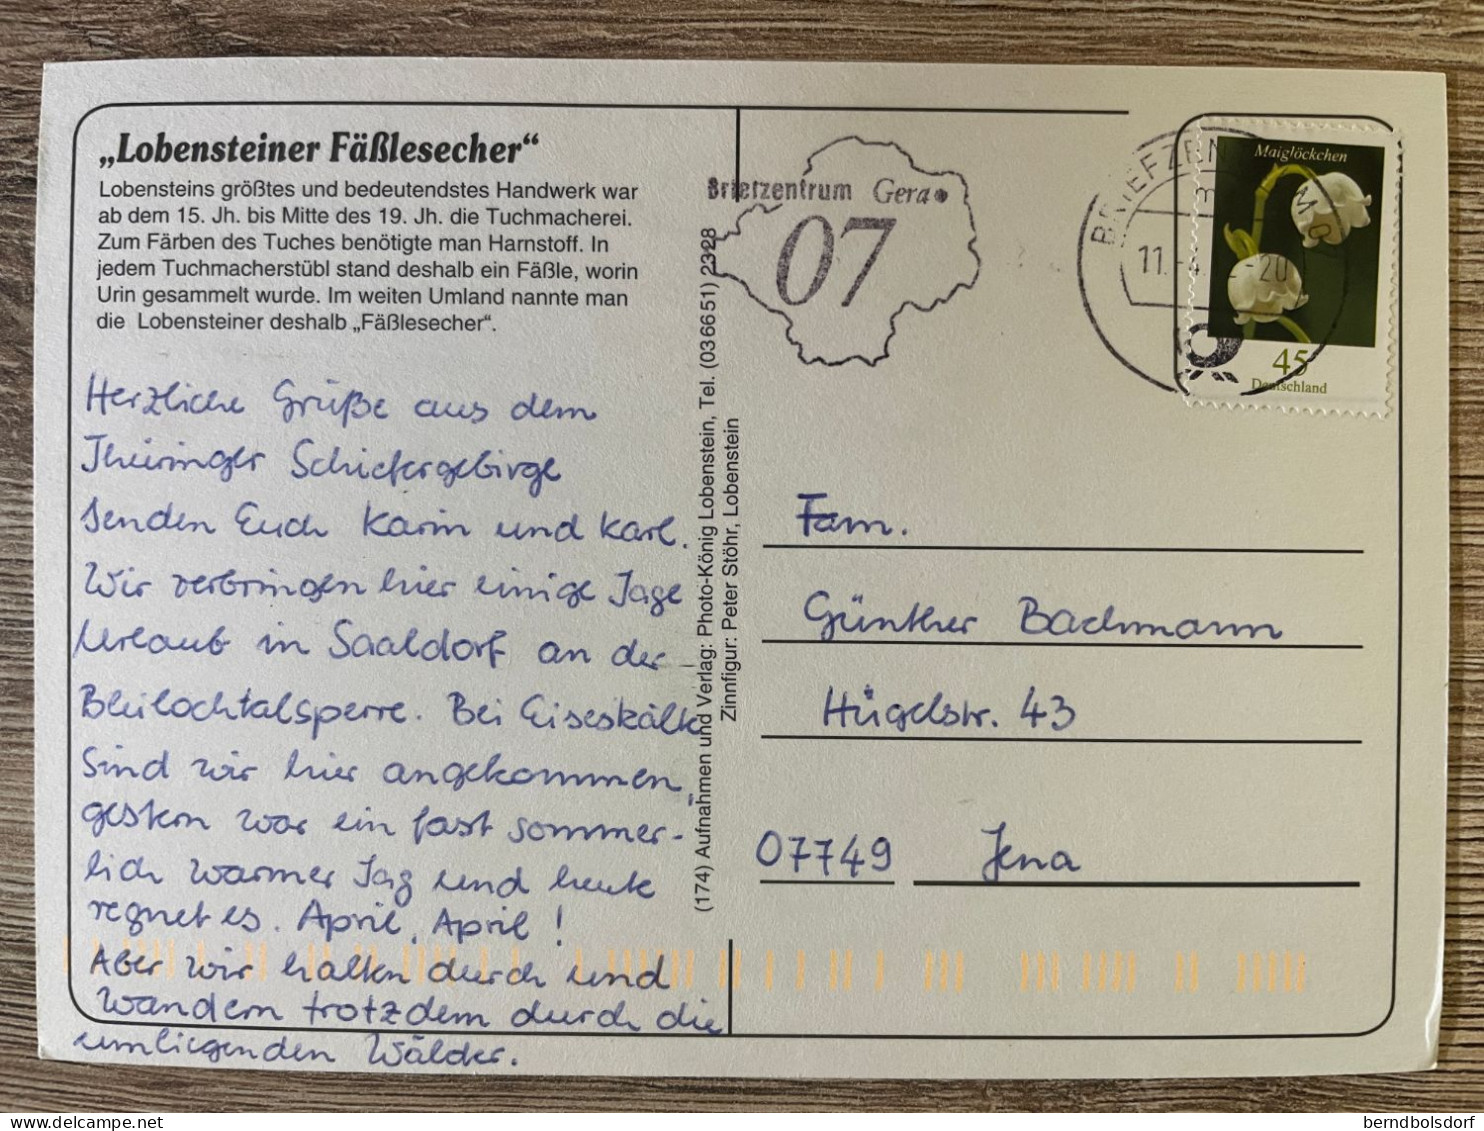 „Lobensteiner Fäßlesecher“
Lobensteins größtes und bedeutendstes Handwerk war
ab dem 15. Jh. bis Mitte des 19. Jh. die Tuchmacherei.
Zum Färben des Tuches benötigte man Harnstoff. In
jedem Tuchmacherstübl stand deshalb ein Fäßle, worin
Urin gesammelt wurde. Im weiten Umland nannte man
die Lobensteiner deshalb „Fäßlesecher“.
Herzliche Grüße aus dem
Thüringer Schiefergebirge
senden Euch Karin und Karl.
Wir verbringen hier einige Tage
Urlaub in Saaldorf an der
Bleilochtalsperre. Bei Eiseskälte
sind wir hier angekommen,
gestern war ein fast sommer-
lich warmer Tag und heute
regnet es. April, April!
Aber wir halten durch und
wandern trotzdem durch die
umliegenden Wälder.
(174) Aufnahmen und Verlag: Photo-König Lobenstein, Tel. (03 66 51) 23 28
Zinnfigur: Peter Stöhr, Lobenstein
Briefzentrum Gera
07
BRIEFZEN
11.-4.
-20
Maiglöckchen
45
Deutschland
Fam.
Günther Bachmann
Hügelstr. 43
07749 Jena
berndbolsdorf